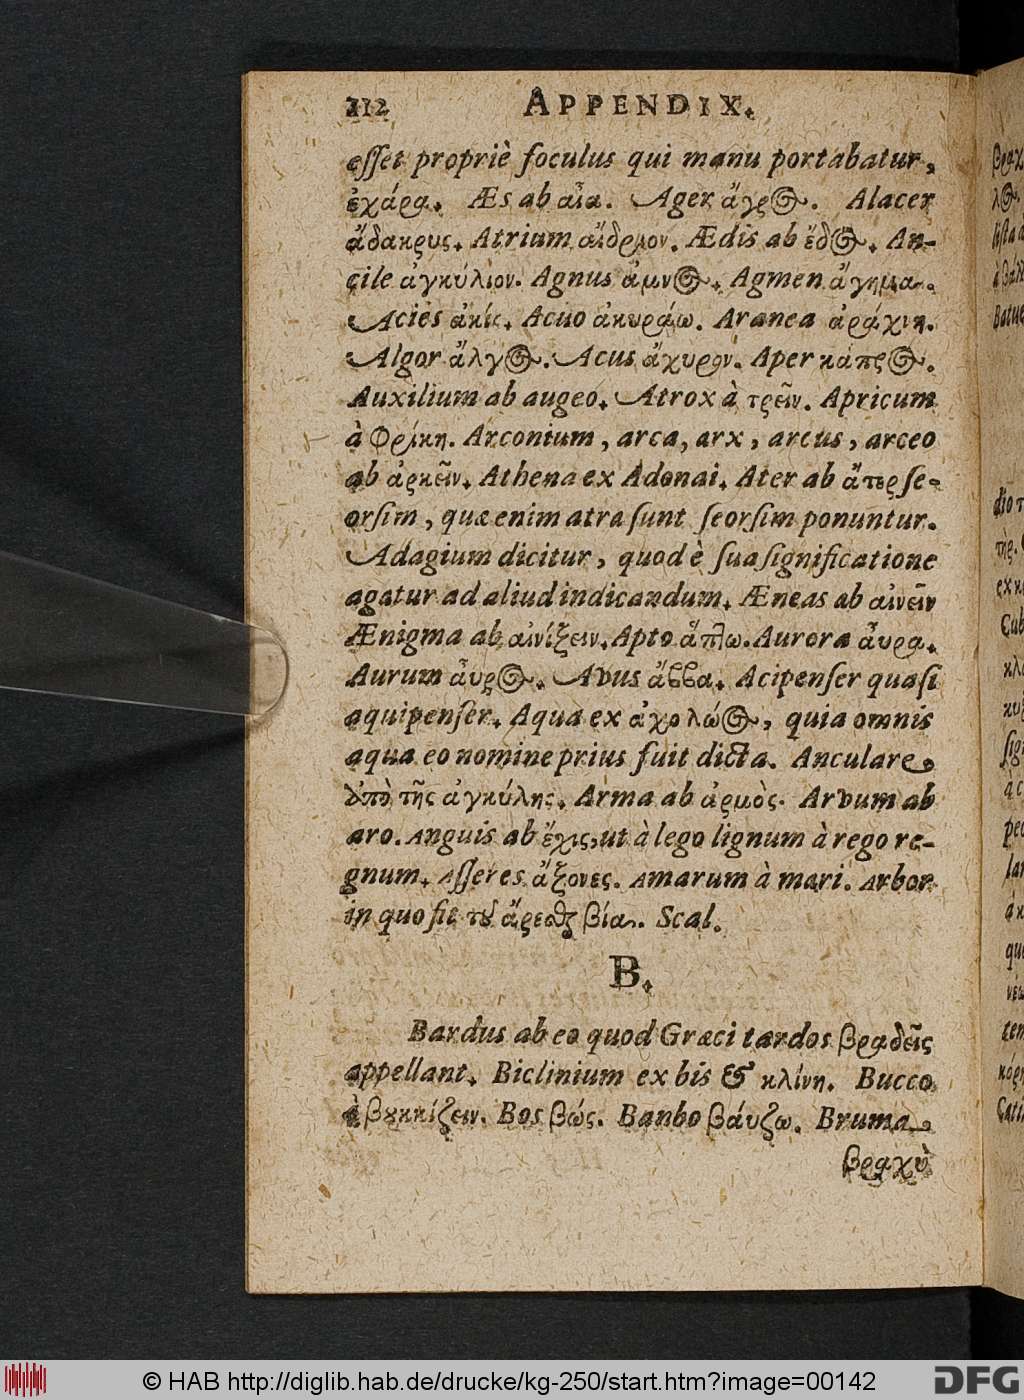 112 APPENDIX.
esset propriè foculus qui manu portabatur,
ἐχάρα. Æs ab αἶα. Ager ἄγρος. Alacer
ἄδακρυς. Atrium αἴδριον. Ædis ab ἕδος. An-
cile ἀγκύλιον. Agnus ἀμνος. Agmen ἄγημα.
Acies ἀκίς. Acuo ἀκυράω. Aranea ἀράχνη.
Algor ἄλγος. Acus ἄχυρον. Aper κάπρος.
Auxilium ab augeo. Atrox à τρεῖν. Apricum
à φρίκη. Arconium, arca, arx, arcus, arceo
ab ἀρκεῖν. Athena ex Adonai. Ater ab ἄτερ se-
orsim, quæ enim atra sunt seorsim ponuntur.
Adagium dicitur, quod è sua significatione
agatur ad aliud indicandum. Æneas ab αἰνεῖν
Ænigma ab αἰνίξειν. Apto ἅπτω. Aurora ἄυρα.
Aurum ἄυρος. Avus ἄββα. Acipenser quasi
aquipenser. Aqua ex ἀχολώος, quia omnis
aqua eo nomine prius fuit dicta. Anculare
ἀπὸ τῆς ἀγκύλης. Arma ab ἁρμὸς. Arvum ab
aro. Anguis ab ἔχις, ut à lego lignum à rego re-
gnum. Asseres ἄξονες. Amarum à mari. Arbor
in quo sit τȣ ἄρεσθαι βία. Scal.
B.
Bardus ab eo quod Græci tardos βραδεῖς
appellant. Biclinium ex bis & κλίνη. Bucco
à βȣκκίζειν. Bos βώς. Banbo βάυζω. Bruma
βραχὺ
© HAB http://diglib.hab.de/drucke/kg-250/start.htm?image=00142
DFG